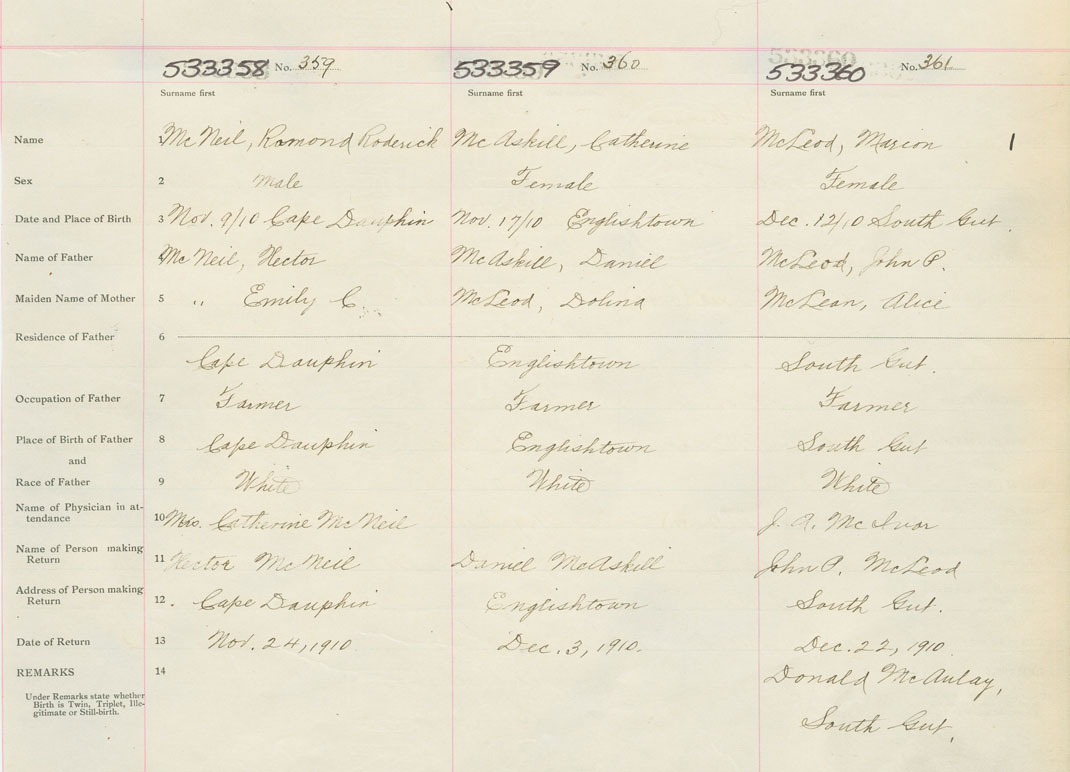 533358 No. 359 533359 No. 360 533360 No. 361
Surname first Surname first Surname first
Name 1 McNeil, Romond Roderick McAskill, Catherine McLeod, Marion 1
Sex 2 Male Female Female
Date and Place of Birth 3 Nov. 9/10 Cape Dauphin Nov. 17/10 Englishtown Dec. 12/10 South Gut.
Name of Father 4 McNeil, Hector McAskill, Daniel McLeod, John P.
Maiden Name of Mother 5 " Emily C. McLeod, Dolina McLean, Alice
Residence of Father 6
Cape Dauphin Englishtown South Gut.
Occupation of Father 7 Farmer Farmer Farmer
Place of Birth of Father 8 Cape Dauphin Englishtown South Gut
and
Race of Father 9 White White White
Name of Physician in at-
tendance 10 Mrs. Catherine McNeil J. A. McIvor
Name of Person making
Return 11 Hector McNeil Daniel McAskill John P. McLeod
Address of Person making
Return 12. Cape Dauphin Englishtown South Gut.
Date of Return 13 Nov. 24, 1910 Dec. 3, 1910. Dec. 22, 1910
REMARKS 14 Donald McAulay,
Under Remarks state whether
Birth is Twin, Triplet, Ille-
gitimate or Still-birth.
South Gut.